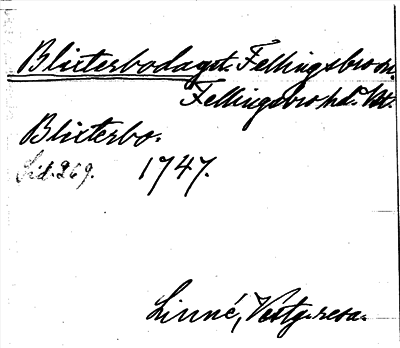 Blixterbodaget. Fellingsbro sn.
Fellingsbro hd. Vstm.
Blixterbo.
Sid. 269. 1747.
Linné, Vestg. resa.